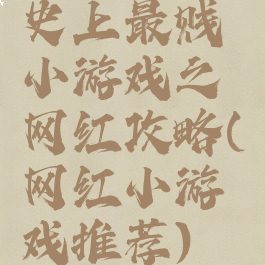 史上最贱
小游戏之
网红攻略(
网红小游
戏推荐)